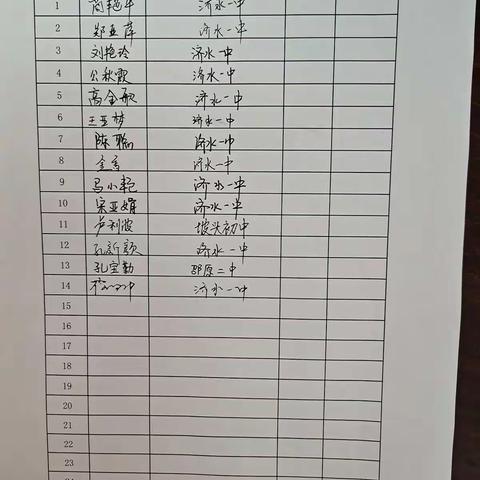 1 济水一中
2 郑亚萍 济水一中
3 刘艳玲 济水一中
4 公秋霞 济水一中
5 高全敏 济水一中
6 王亚梦 济水一中
7 陈聪 济水一中
8 济水一中
9 马小艳 济水一中
10 宋亚娟 济水一中
11 卢利波 坡头初中
12 孔新颖 济水一中
13 孔宝勤 邵原二中
14 济水一中
15
16
17
18
19
20
21
22
23